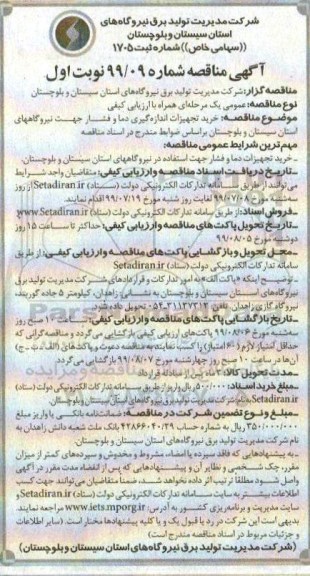 شرکت مدیریت تولید برق نیروگاه‌های
استان سیستان و بلوچستان
((سهامی خاص)) شماره ثبت ۱۷۰۵
آگهی مناقصه شماره ۹۹/۰۹ نوبت اول
مناقصه گزار: شرکت مدیریت تولید برق نیروگاه‌های استان سیستان و بلوچستان
نوع مناقصه: عمومی یک مرحله‌ای همراه با ارزیابی کیفی
موضوع مناقصه: خرید تجهیزات اندازه‌گیری دما و فشار جهت نیروگاههای
استان سیستان و بلوچستان براساس ضوابط مندرج در اسناد مناقصه
مهم ترین شرایط عمومی مناقصه:
ـ خرید تجهیزات دما و فشار جهت استفاده در نیروگاههای استان سیستان و بلوچستان.
ـ تاریخ دریافت اسناد مناقصه و ارزیابی کیفی: متقاضیان واجد شرایط
می‌توانند از طریق سامانه تدارکات الکترونیکی دولت (ستاد) Setadiran.ir از روز
سه‌شنبه مورخ ۹۹/۰۷/۰۸ لغایت روز شنبه مورخ ۹۹/۰۷/۱۹ اقدام نمایند.
ـ فروش اسناد: از طریق سامانه تدارکات الکترونیکی دولت (ستاد) www.Setadiran.ir
ـ تاریخ تحویل پاکت‌های مناقصه و ارزیابی کیفی: حداکثر تا ساعت ۱۵ روز
دوشنبه مورخ ۹۹/۰۸/۰۵
ـ محل تحویل و بازگشایی پاکت‌های مناقصه و ارزیابی کیفی: از طریق
سامانه تدارکات الکترونیکی دولت (ستاد) Setadiran.ir
ـ توضیح اینکه «پاکت الف» به امور تدارکات و قراردادهای شرکت مدیریت تولید برق
نیروگاه‌های استان سیستان و بلوچستان به نشانی: زاهدان، کیلومتر ۵ جاده گوربند،
نیروگاه گازی زاهدان، تلفن: ۳۱۱۳۷۲۱۴-۰۵۴ تحویل داده شود.
ـ تاریخ بازگشایی پاکت‌های مناقصه و ارزیابی کیفی: ساعت ۱۰ صبح روز
سه‌شنبه مورخ ۹۹/۰۸/۰۶ پاکت‌های ارزیابی کیفی بازگشایی می‌گردد و مناقصه‌گرانی که
حداقل امتیاز لازم را کسب نمایند به مناقصه دعوت و پاکت‌های (الف، ب، ج)
آن‌ها در ساعت ۱۰ صبح روز چهارشنبه مورخ ۹۹/۰۸/۰۷ بازگشایی می‌گردد.
ـ مدت تحویل کالا:
ـ مبلغ خرید اسناد: ۵۰۰/۰۰۰ ریال واریز از طریق سامانه تدارکات الکترونیکی دولت (ستاد)
Setadiran.ir بنام شرکت مدیریت تولید برق نیروگاه‌های استان سیستان و بلوچستان.
ـ مبلغ و نوع تضمین شرکت در مناقصه: ضمانت‌نامه بانکی یا واریز مبلغ
۳۵۰/۰۰۰/۰۰۰ ریال به شماره حساب ۴۲۸۶۶۰۴۰/۲۹ بانک ملت شعبه دانش زاهدان به
نام شرکت مدیریت تولید برق نیروگاه‌های استان سیستان و بلوچستان.
ـ به پیشنهادهایی که فاقد سپرده یا امضاء، مشروط و مخدوش و سپرده‌های کمتر از میزان
مقرر، چک شخصی و نظایر آن و پیشنهادهایی که پس از انقضاء مدت مقرر در آگهی
واصل شود مطلقاً ترتیب اثر داده نخواهد شد. ضمناً متقاضیان می‌توانند جهت کسب
اطلاعات بیشتر به سایت سامانه تدارکات الکترونیکی دولت (ستاد) Setadiran.ir و
سایت مدیریت و برنامه‌ریزی کشور به آدرس: www.iets.mporg.ir مراجعه نمایند.
بدیهی است این شرکت در رد یا قبول یک و یا کلیه پیشنهادها مختار است. (سایر اطلاعات و
جزئیات مربوط در اسناد مناقصه مندرج است)
(شرکت مدیریت تولید برق نیروگاه‌های استان سیستان و بلوچستان)